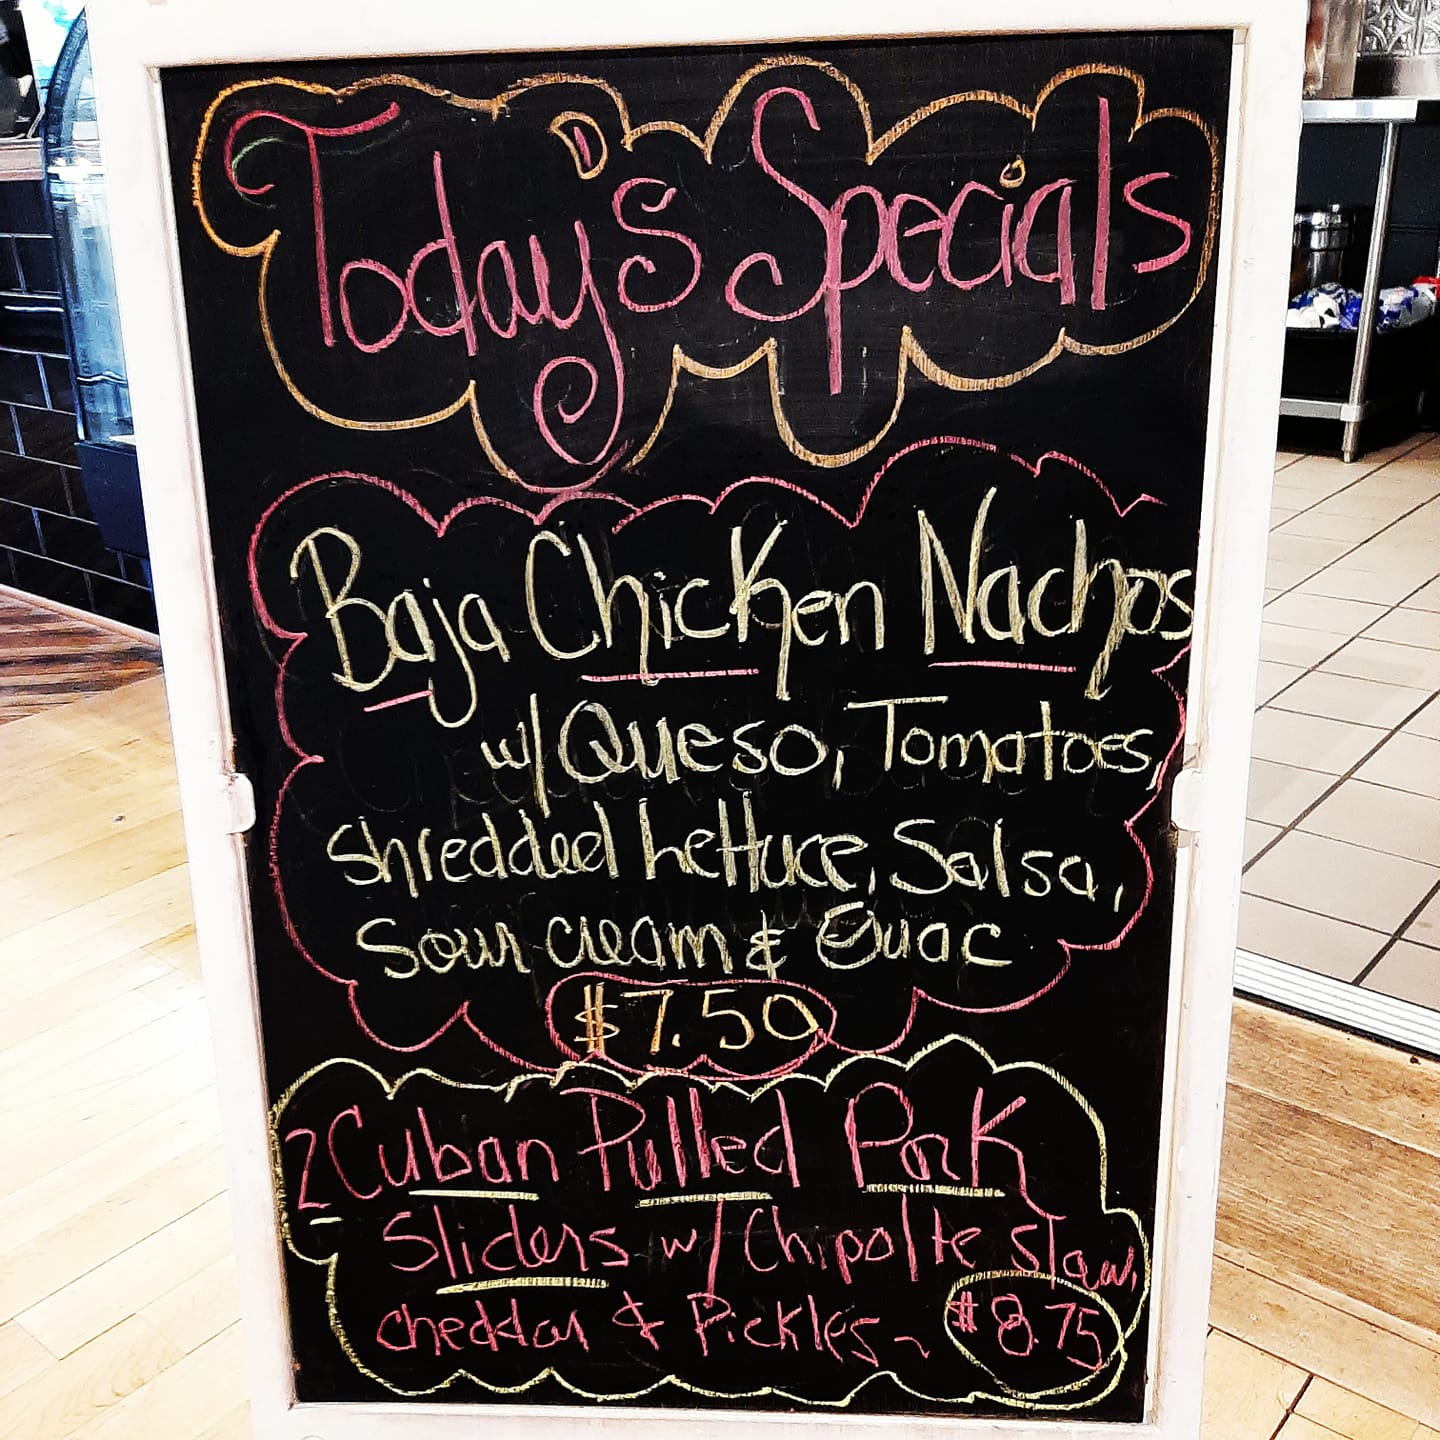 Today's Specials
Baja Chicken Nachos
w/ Queso, Tomatoes,
shredded Lettuce, Salsa,
Sour cream & Guac
$7.50
2 Cuban Pulled Pork
Sliders w/ Chipolte slaw,
cheddar & Pickles - $8.75